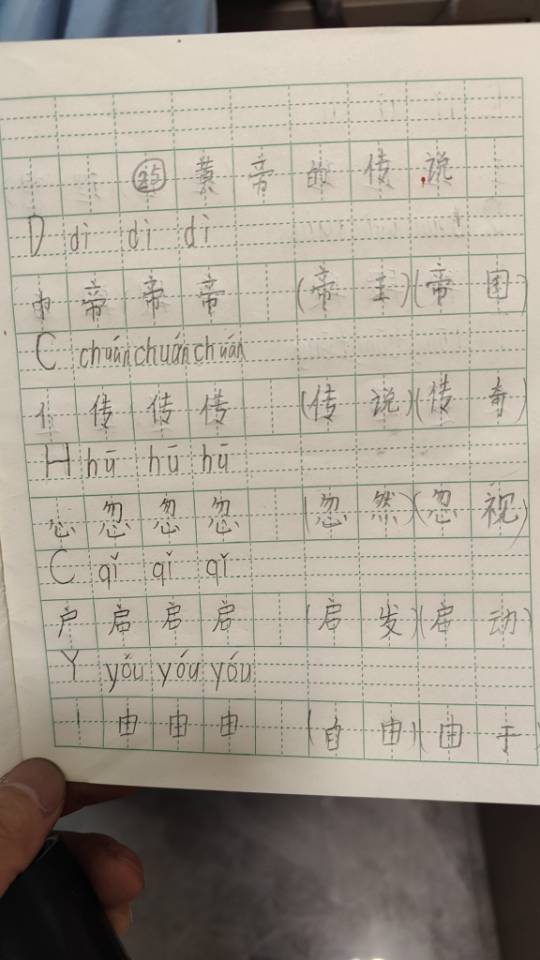 25 黄帝的传说
D dì dì dì
巾 帝 帝 帝 (帝王)(帝国)
C chuán chuán chuán
亻 传 传 传 (传说)(传奇)
H hū hū hū
心 忽 忽 忽 (忽然)(忽视)
C qǐ qǐ qǐ
户 启 启 启 (启发)(启动)
Y yǒu yóu yóu
丨 由 由 由 (自由)(由于)